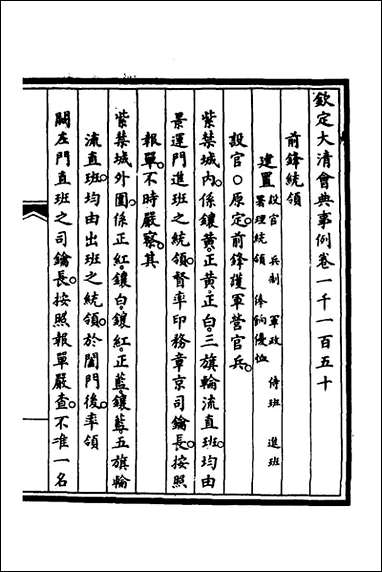 欽定大清會典事例卷一千一百五十
前鋒統領
建置
設官 兵制 軍政 侍班 進班
署理統領 俸餉優恤
設官○原定前鋒護軍營官兵。
紫禁城內。係鑲黃。正黃。正白。三旗輪流直班。均由
景運門進班之統領。督率印務章京司鑰長。按照
報單。不時嚴察。其
紫禁城外圍。係正紅。鑲白。鑲紅。正藍。鑲藍。五旗輪
流直班。均由出班之統領。於闔門後。率領
闕左門直班之司鑰長。按照報單嚴查。不准一名